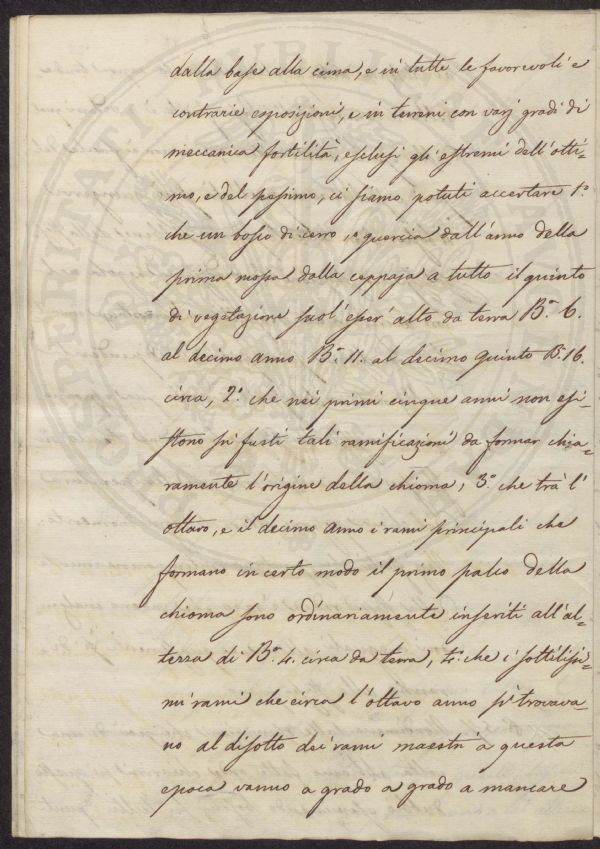 dalla base alla cima, e in tutte le favorevoli e
contrarie esposizioni, e in terreni con varj gradi di
meccanica fertilità, esclusi gli estremi dell'otti=
mo, e del pessimo, ci siamo potuti accertare 1.o
che un bosco di cerro, e quercia dall'anno della
prima mossa dalla ceppaja a tutto il quinto
di vegetazione suol' esser' alto da terra B.a 6.
al decimo anno B.a 11. al decimo quinto B. 16.
circa, 2.o che nei primi cinque anni non esi=
stono su' fusti tali ramificazioni da formar chia=
ramente l'origine della chioma, 3.o che trà l'
ottavo, e il decimo anno i rami principali che
formano in certo modo il primo palco della
chioma sono ordinariamente inseriti all'al=
tezza di B.a 4. circa da terra, 4.o che i sottilissi=
mi rami che circa l'ottavo anno si trovava=
no al disotto dei rami maestri a questa
epoca vanno a grado a grado a mancare